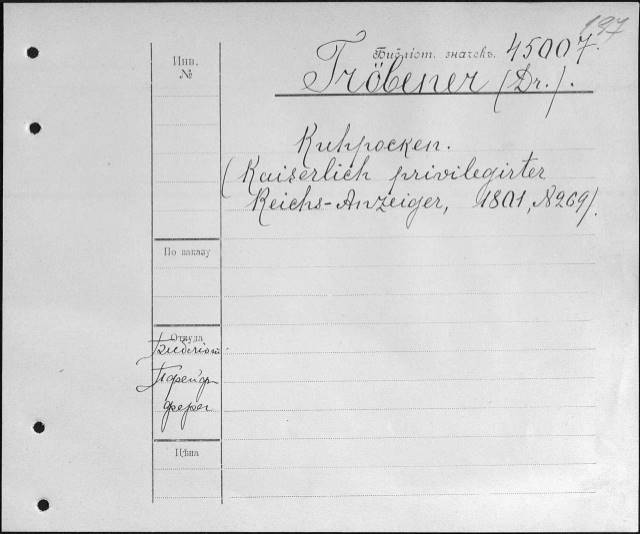 197
Библіот. значекъ. 45007.
Инв.
№
Tröbener (Dr.).
Kuhpocken.
(Kaiserlich privilegirter
Reichs-Anzeiger, 1801, №269).
По заказу
Откуда
Библіот.
Пфейф-
фера
Цѣна